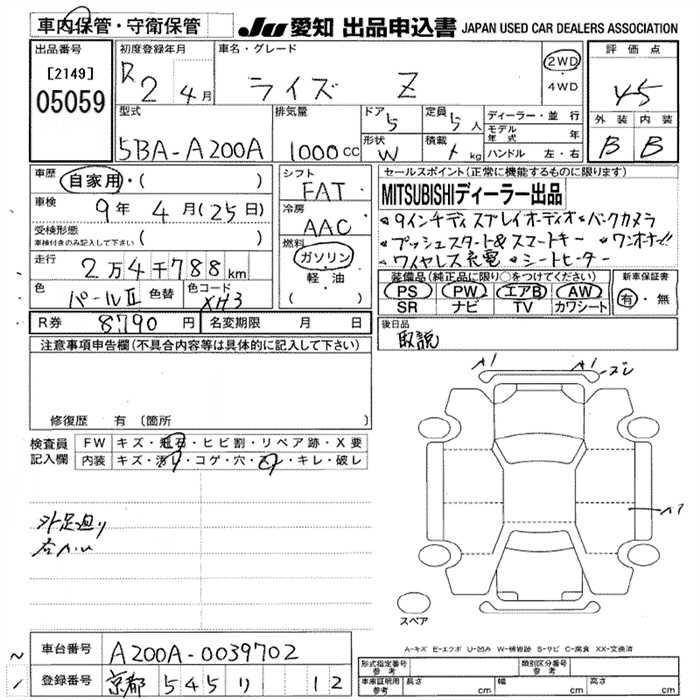 車内保管・守衛保管
JU 愛知 出品申込書 JAPAN USED CAR DEALERS ASSOCIATION
出品番号
[2149]
05059
初度登録年月
R2 4月
車名・グレード
ライズ Z
2WD
4WD
評価点
4.5
外装 内装
B B
型式
5BA-A200A
排気量
1000 cc
ドア
5
形状
W
定員
5人
積載
kg
ディーラー・並行
モデル年式 年
ハンドル 左・右
車歴
自家用・( )
車検
9年 4月(25日)
受検形態
車検付きのみ記入して下さい
( )
走行
2万4千788km
色
パールⅡ
色替
色コード
XH3
シフト
FAT
冷房
AAC
燃料
ガソリン
軽・油
( )
セールスポイント(正常に機能するものに限ります)
MITSUBISHIディーラー出品
9インチディスプレイオーディオ バックカメラ
プッシュスタート&スマートキー ワンオーナー!!
ワイヤレス充電 シートヒーター
装備品(純正品に限り○をつけてください)
PS PW エアB AW
SR ナビ TV カワシート
新車保証書
有・無
R券 8790円
名変期限 月 日
後日品
取説
注意事項申告欄(不具合内容等は具体的に記入して下さい)
修復歴 有(箇所
検査員記入欄
FW キズ・飛石・ヒビ割・リペア跡・X要
内装 キズ・汚れ・コゲ・穴・スレ・キレ・破レ
外足廻り
A1 A1 ズレ
スペア
A-キズ E-エクボ U-凹み W-補修跡 S-サビ C-腐食 XX-交換済
車台番号 A200A-0039702
登録番号 京都 545 り 12
形式指定番号
参考
類別区分番号
参考
車庫証明用
参考
長さ cm
幅 cm
高さ cm